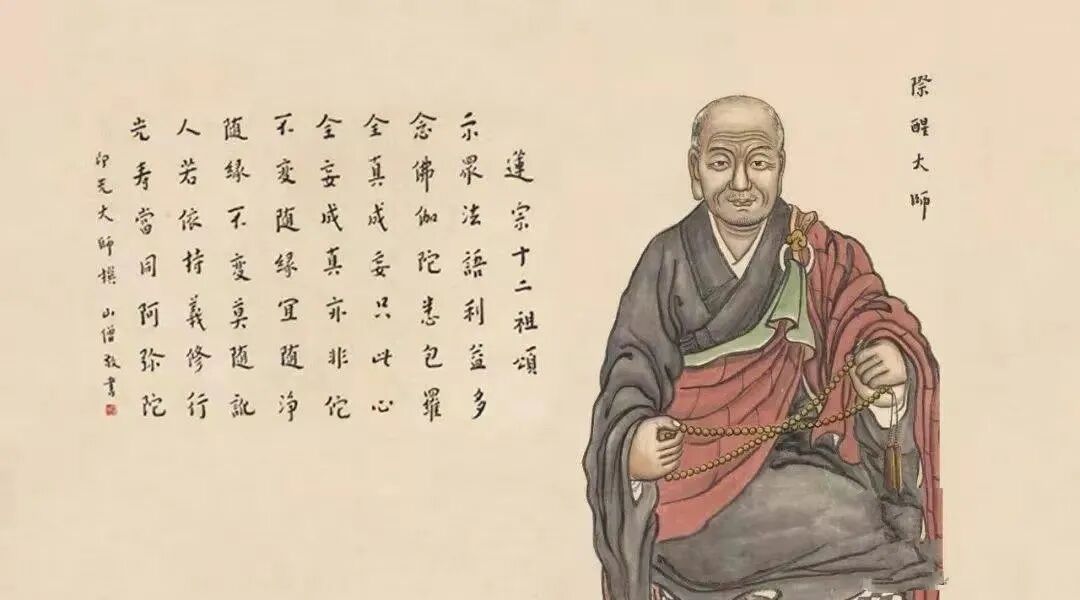 際醒大師
蓮宗十二祖頌
示眾法語利益多
念佛伽陀悉包羅
全真成妄只此心
全妄成真亦非佗
不変随緣宜随淨
随緣不変莫随訛
人若依持義修行
光寿當同阿弥陀
印光大師撰 山僧敬書